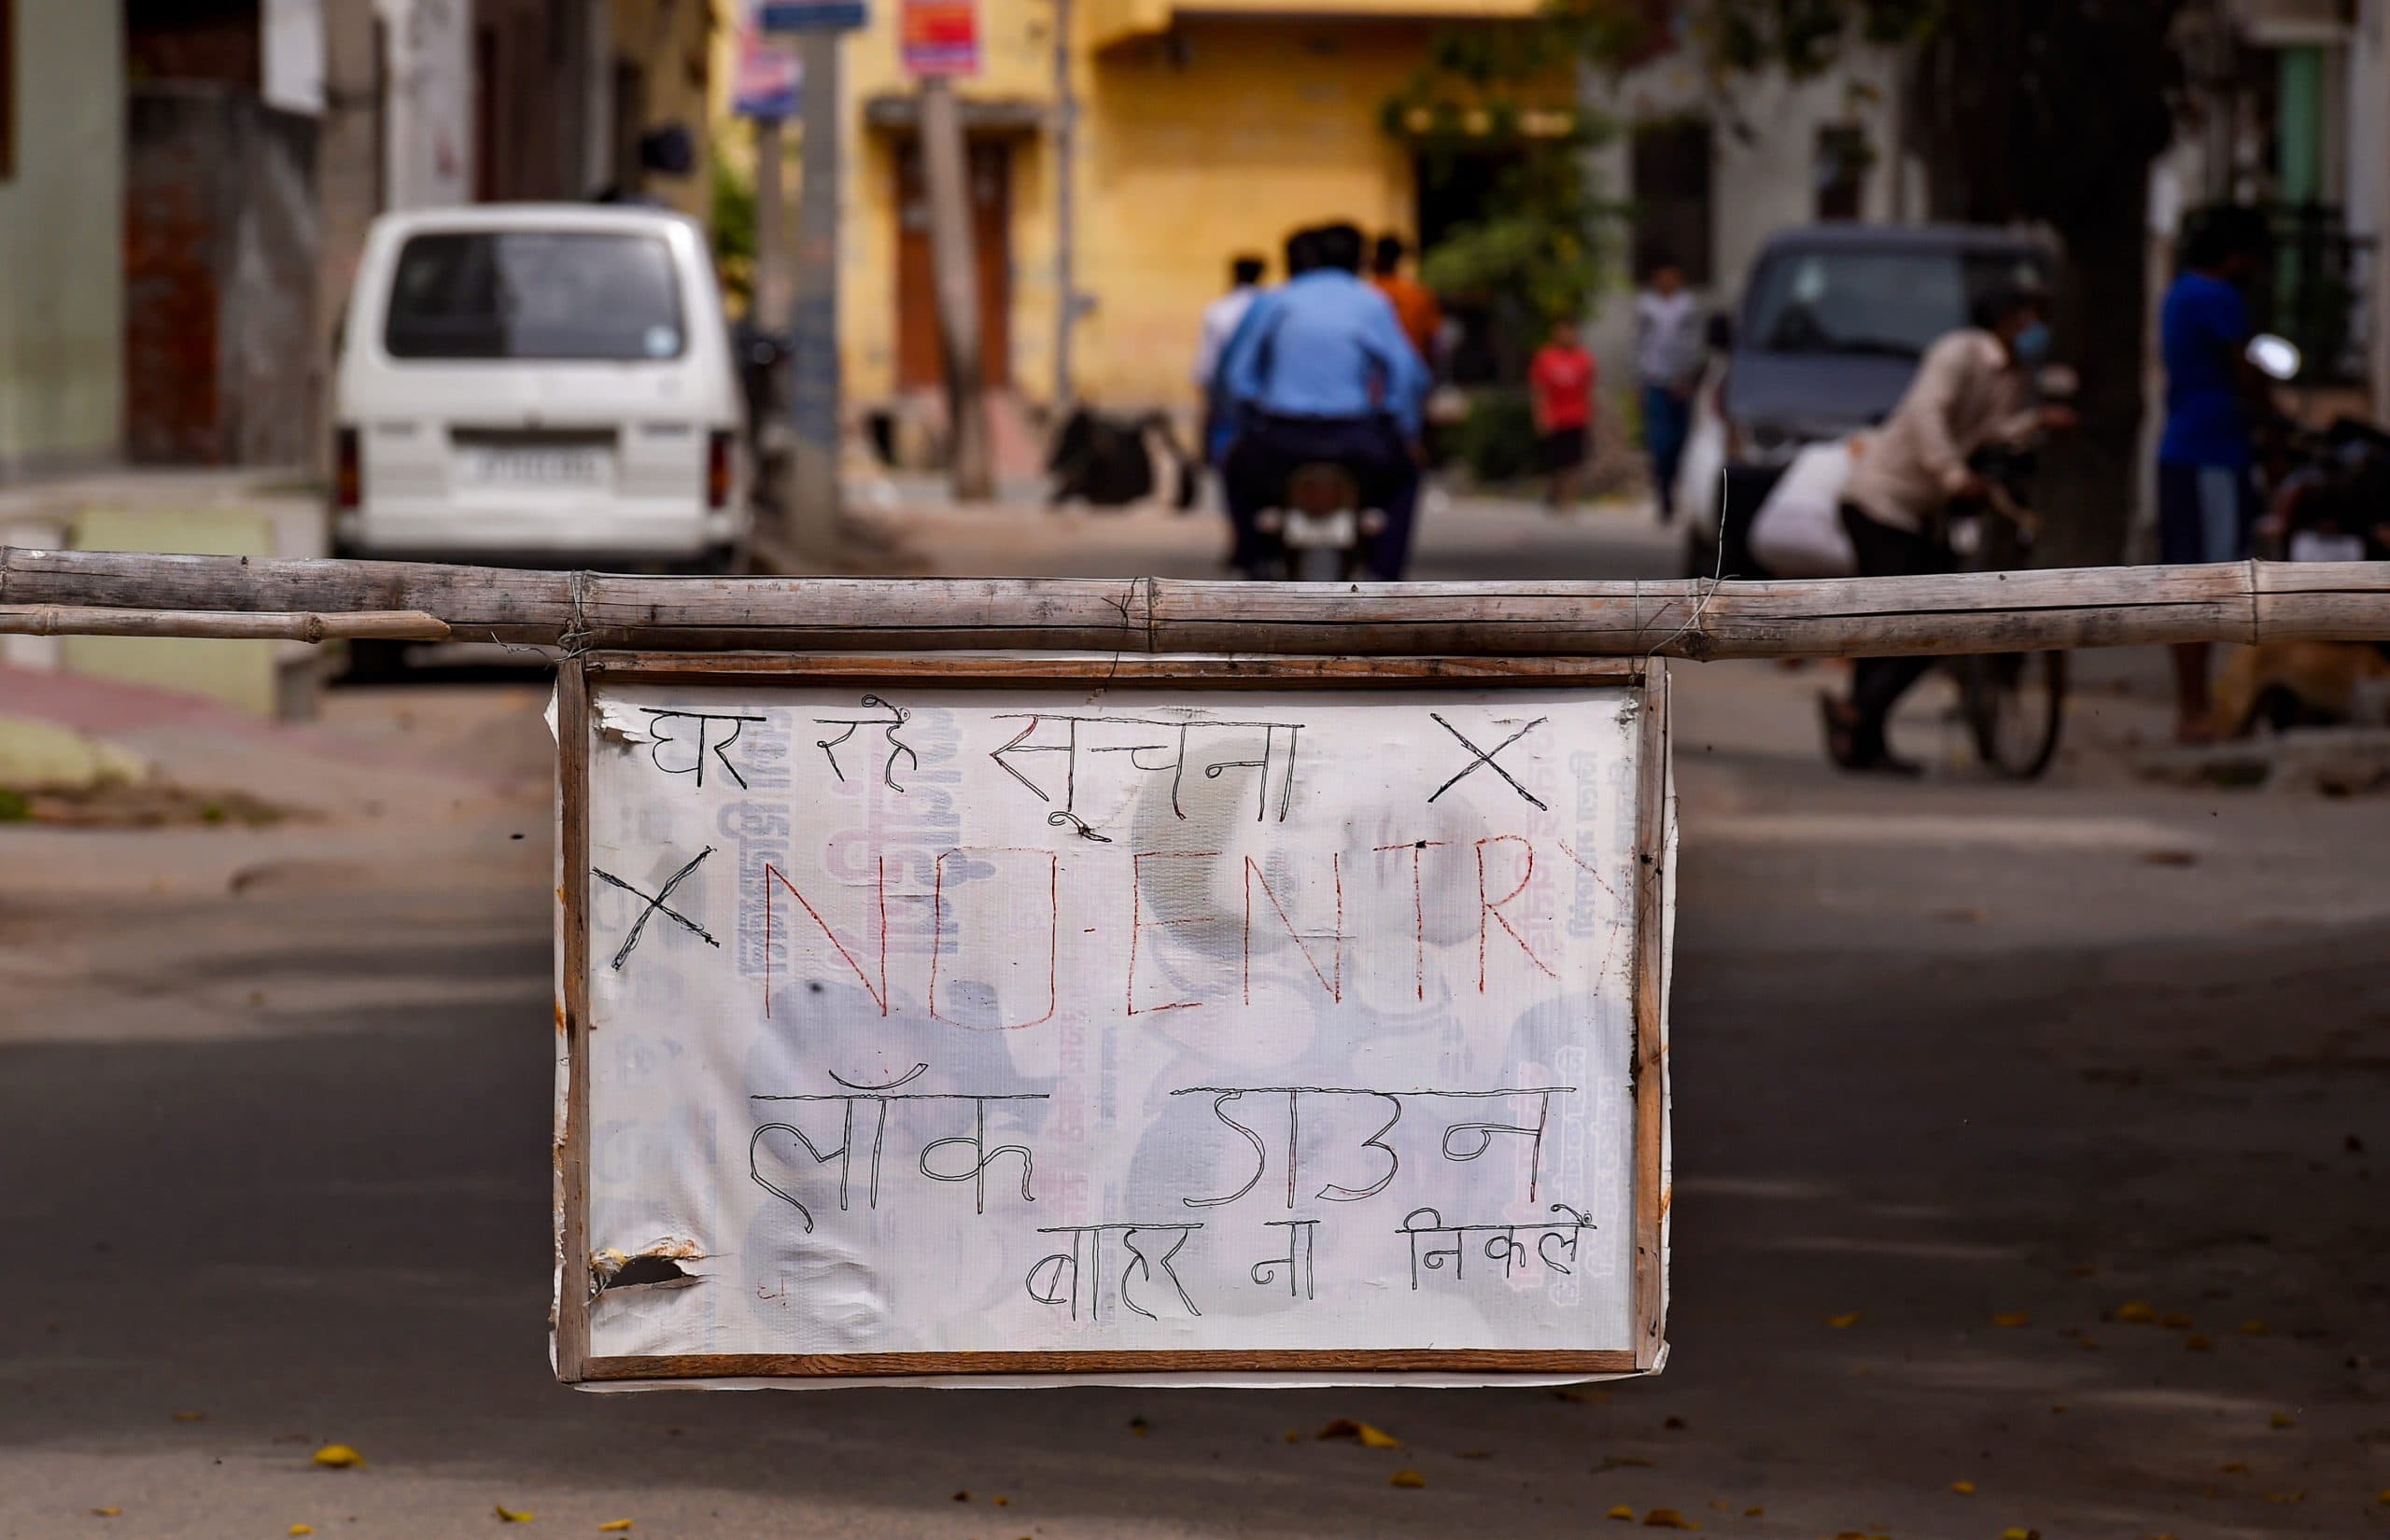 घर रहें सूचना X
X NO-ENTRY
लॉक डाउन
बाहर ना निकलें